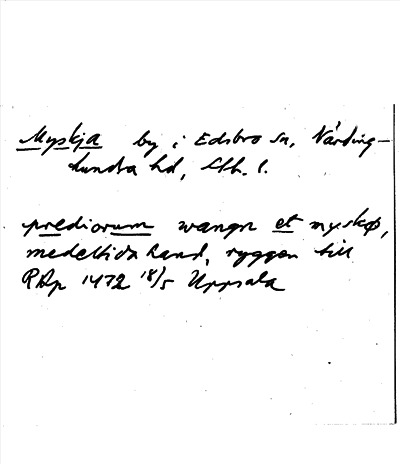 Myskja by i Edsbro sn, Närding-
hundra hd, Sth. l.
prediorum wangn et myskø,
medeltida hand, ryggen till
RAp 1472 18/5 Uppsala